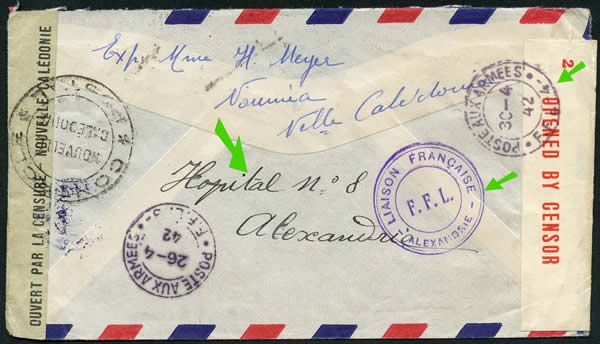 Exp: Mme H. Meyer
Nouméa
Nlle Calédonie
Hopital n° 8
Alexandria
OUVERT PAR LA CENSURE NOUVELLE-CALÉDONIE
NOUVELLE
CALÉDONIE
POSTE AUX ARMEES • F.F.L.
26-4
42
LIAISON FRANÇAISE
F. F. L.
- ALEXANDRIE -
POSTE AUX ARMEES • F.F.L. -4
30-4
42
2
OPENED BY CENSOR